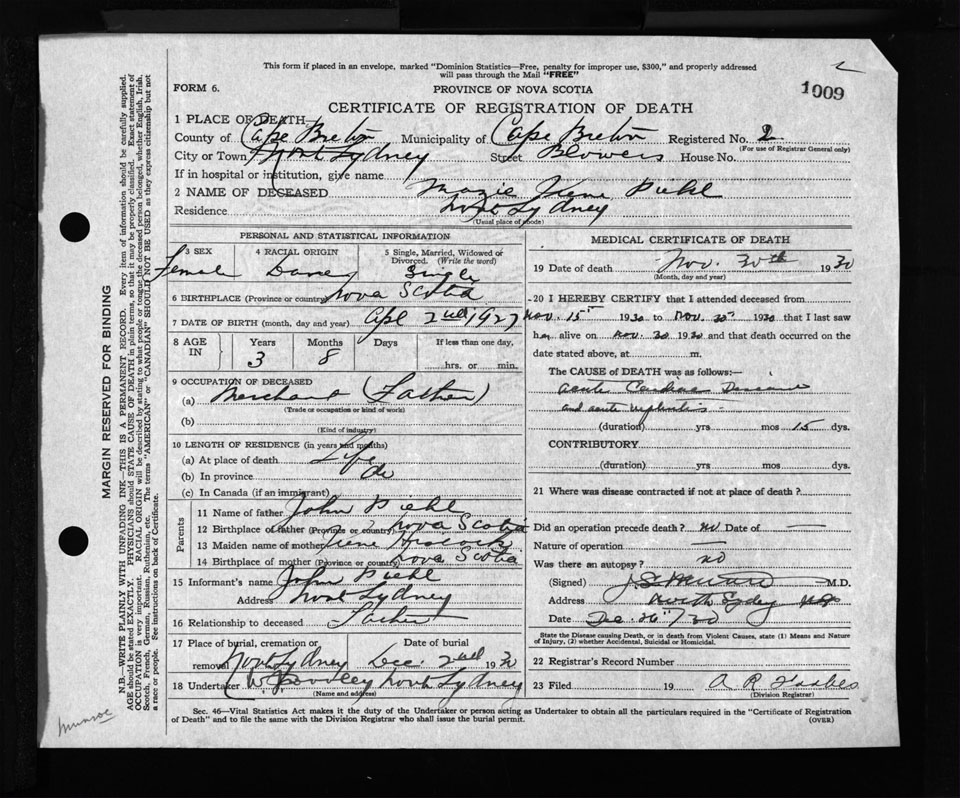 This form if placed in an envelope, marked "Dominion Statistics—Free, penalty for improper use, $300," and properly addressed
will pass through the Mail "FREE"
1009
FORM 6.
PROVINCE OF NOVA SCOTIA
CERTIFICATE OF REGISTRATION OF DEATH
1 PLACE OF DEATH
County of Cape Breton Municipality of Cape Breton Registered No. 2
(For use of Registrar General only)
City or Town North Sydney Street Blowers House No.
If in hospital or institution, give name
2 NAME OF DECEASED Irene Piehl
Residence North Sydney
(Usual place of abode)
PERSONAL AND STATISTICAL INFORMATION
3 SEX 4 RACIAL ORIGIN 5 Single, Married, Widowed or
Divorced. (Write the word)
Female Single
6 BIRTHPLACE (Province or country) Nova Scotia
7 DATE OF BIRTH (month, day and year) Apl 2nd 1927
8 AGE IN Years Months Days If less than one day,
3 8 hrs. or min.
9 OCCUPATION OF DECEASED
(a) Merchant (Father)
(Trade or occupation or kind of work)
(b)
(Kind of industry)
10 LENGTH OF RESIDENCE (in years and months)
(a) At place of death Life
(b) In province do
(c) In Canada (if an immigrant)
Parents
11 Name of father John Piehl
12 Birthplace of father (Province or country) Nova Scotia
13 Maiden name of mother Irene
14 Birthplace of mother (Province or country) Nova Scotia
15 Informant's name John Piehl
Address North Sydney
16 Relationship to deceased Father
17 Place of burial, cremation or Date of burial
removal North Sydney Dec. 2nd 1930
18 Undertaker North Sydney
(Name and address)
MEDICAL CERTIFICATE OF DEATH
19 Date of death Nov. 30th 1930
(Month, day and year)
20 I HEREBY CERTIFY that I attended deceased from
Nov. 15th 1930 to Nov. 30th 1930 that I last saw
her alive on Nov. 30 1930 and that death occurred on the
date stated above, at m.
The CAUSE of DEATH was as follows:—
Acute Cardiac Disease
and acute nephritis
(duration) yrs mos 15 dys.
CONTRIBUTORY
(duration) yrs mos dys.
21 Where was disease contracted if not at place of death?
Did an operation precede death? no Date of —
Nature of operation —
Was there an autopsy? no
(Signed) M.D.
Address North Sydney N.S.
Date Dec. 26"/30
State the Disease causing Death, or in death from Violent Causes, state (1) Means and Nature
of Injury, (2) whether Accidental, Suicidal or Homicidal.
22 Registrar's Record Number
23 Filed 19 A R Forbes
(Division Registrar)
Sec. 46—Vital Statistics Act makes it the duty of the Undertaker or person acting as Undertaker to obtain all the particulars required in the "Certificate of Registration
of Death" and to file the same with the Division Registrar who shall issue the burial permit.
(OVER)
MARGIN RESERVED FOR BINDING
N.B.—WRITE PLAINLY WITH UNFADING INK—THIS IS A PERMANENT RECORD. Every item of information should be carefully supplied.
AGE should be stated EXACTLY. PHYSICIANS should STATE CAUSE OF DEATH in plain terms, so that it may be properly classified. Exact statement of
OCCUPATION is very important. RACIAL ORIGIN will be described by stating to what people or tongue the deceased person belonged, whether English, Irish,
Scotch, French, German, Russian, Ruthenian, etc. The terms "AMERICAN" or "CANADIAN" SHOULD NOT BE USED as they express citizenship but not
a race or people. See instructions on back of Certificate.
Munroe